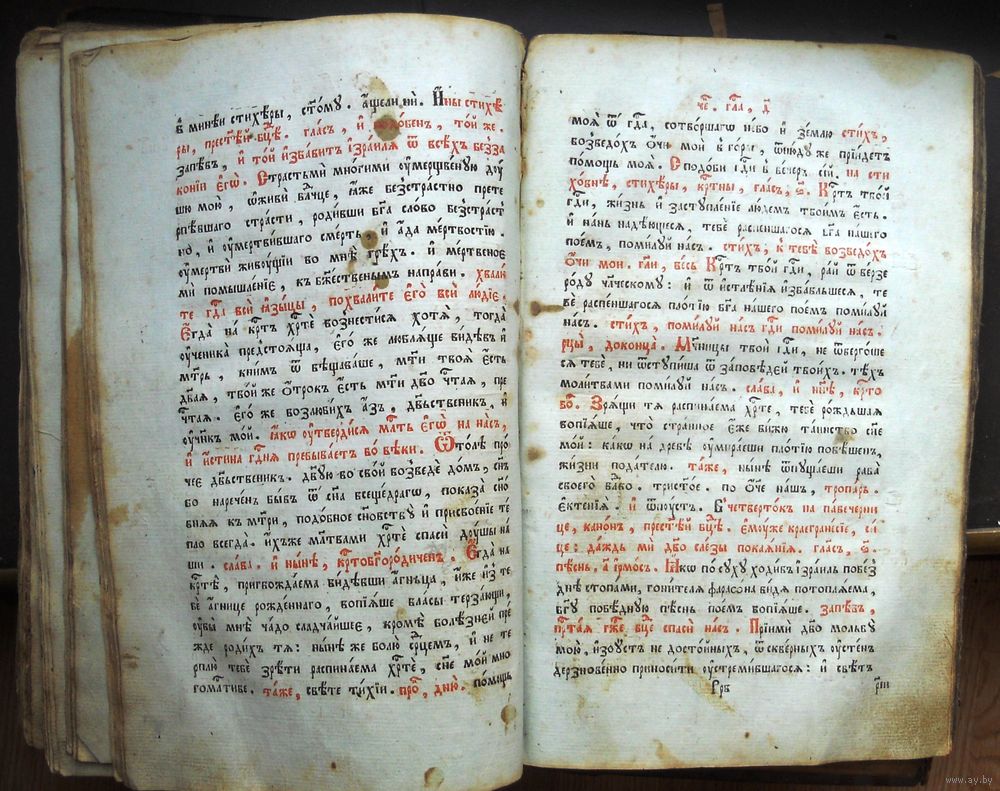 в минеи стихѣры, ст҃ому. а҆ще ли ни. И҆ны стихѣ
ры, прест҃ѣй бц҃ѣ. гла́съ, и҃ подо́бенъ, то́й же.
запѣвъ, и҆ то́й и҆зба́витъ і҆зра́илѧ ѿ всѣ́хъ безза
ко́нїи є҆гѡ̀. Страстьмѝ мно́гими ᲂу҆мерщве́ную дꙋ́
шю мою̀, ѡ҆живѝ влⷣчце, ꙗ҆́же безстра́стно прете
рпѣ́вшаго стра́сти, ро́дивши бг҃а сло́во безстра́ст
но, и҆ ᲂу҆мертви́вшаго сме́рть, и҆ а҆́да ме́ртвостїю.
ᲂу҆мертвѝ живꙋ́щїи во мнѣ̀ грѣ́хъ. и҆ ме́ртвеное
мѝ помышле́нїе, къ бж҃е́ственымъ напра́ви. хвали́
те гдⷭ҇а всѝ ꙗ҆зы́цы, похвали́те є҆го̀ всѝ лю́дїе.
Є҆гда̀ на крⷭ҇тъ хрⷭ҇тѐ вознести́сѧ хотѧ̀, тогда̀
ᲂу҆ченика̀ предстоѧ́ща, є҆го́ же люблѧ́ше ви́дѣвъ и҆
мт҃рь, кни́мъ ѿвѣщава́ше, мт҃и твоѧ̀ є҆́сть
дв҃аѧ, тво́й же ѻ҆́трокъ є҆́сть мт҃и дв҃о чⷭ҇таѧ, пре
чⷭ҇таѧ. є҆го́ же возлюби́хъ а҆́зъ, дв҃ьственикъ, и҆
ᲂу҆чн҃къ мо́й. ꙗ҆́кѡ ᲂу҆тверди́сѧ млⷭ҇ть є҆гѡ̀ на на́съ,
и҆ и҆́стина гдⷭ҇нѧ пребыва́етъ во́ вѣки. Ѿто́лѣ про́
чее дв҃ьственикъ. дв҃ꙋю во сво́й возведѐ до́мъ, сн҃ъ
бо нарече́нъ бы́въ ѿ сн҃а всеще́драго, показа̀ сн҃о́
внѧѧ къ мт҃ри, подо́бное сн҃овствꙋ̀ и҆ присвое́нїе те
пло всегда̀. и҆́хъже мл҃твами хрⷭ҇тѐ спасѝ дꙋ́шы на́
ши. сла́ва. и҆ ны́нѣ, крⷭ҇тобг҃оро́диченъ. Є҆гда̀ на
крⷭ҇тѣ̀, пригвожда́ема ви́дѣвши а҆́гньца, и҆́же и҆з̾ те
бѐ а҆́гнице рожде́ннаго, вопїѧ́ше власы̀ терза́ющи,
ᲂу҆вы̀ мнѣ̀ ча́до сладча́йшее, кромѣ̀ болѣ́зней пре́
жде роди́хъ тѧ̀: ны́нѣ же болю̀ срⷣцемъ, и҆ не те
рплю̀ тебѐ зрѣ́ти распина́ема хрⷭ҇тѐ, сн҃е мо́й мно
гомлⷭ҇тиве. та́же, свѣ́те ти́хїи. про, дню̀. по́мощь
че. гла, д҃
моѧ̀ ѿ гдⷭ҇а, сотво́ршагѡ не́бо и҆ зе́млю сти́хъ,
возведо́хъ ѻ҆́чи моѝ в го́ры, ѿню́дꙋ же прїи́детъ
по́мощь моѧ̀. Сподо́би гдⷭ҇и в ве́черъ се́й. на сти
хо́внѣ, стихѣ́ры, крⷭ҇тны, гла́съ, ѕ҃. Крⷭ҇тъ тво́й
гдⷭ҇и, жи́знь и҆ заступле́нїе лю́демъ твои́мъ є҆́сть.
и҆ на́нь надѣ́ющесѧ, тебѐ распе́ншагосѧ бг҃а на́шего
пое́мъ, поми́луй на́съ. сти́хъ, к тебѣ̀ возведо́хъ
ѻ҆́чи мои. гл҃и, ве́сь Крⷭ҇тъ тво́й гдⷭ҇и, ра́й ѿве́рзе
ро́дꙋ чл҃ческомꙋ: и҆ ѿ и҆стлѣ́нїѧ и҆зба́вльшесѧ, те
бѐ распе́ншагосѧ пло́тїю бг҃а на́шего пое́мъ поми́луй
на́съ. сти́хъ, поми́луй на́съ гдⷭ҇и поми́луй на́съ.
рцы̀, до конца̀. Мч҃ницы тво́й гдⷭ҇и, не ѿверго́ше
сѧ тебѐ, ни ѿстꙋпи́ша ѿ за́повѣдей твои́хъ. тѣ́хъ
моли́твами поми́луй на́съ. сла́ва, и҆ ны́нѣ, крⷭ҇то
бо. Зрѧ́щи тѧ̀ распина́ема хрⷭ҇тѐ, тебѐ ро́ждьшаѧ
вопїѧ́ше, что̀ стра́нное є҆́же ви́жю та́инство сн҃е
мо́й: ка́кѡ на дре́вѣ ᲂу҆мира́еши пло́тїю повѣ́шенъ,
жи́зни пода́телю. та́же, ны́нѣ ѿпꙋща́еши раба̀
своего̀ влⷣко. трист҃о́е. по ѻ҆́ч҃е на́шъ, тропа́рь.
є҆ктенїѧ̀. и҆ ѿпꙋ́стъ. В четверто́къ на паве́черни
це, кано́нъ, прест҃ѣй бц҃ѣ. є҆мꙋ́же краегране́сїе, си́
це: да́ждь мѝ дв҃о сле́зы покаѧ́нїѧ. гла́съ, ѕ҃.
пѣ́снь, а҃ і҆рмо́съ. Ꙗ҆́кѡ по сꙋ́хꙋ ходи́въ і҆зра́иль по бе́з
днѣ стопа́ми, гони́телѧ фараѡ́на ви́дѧ потоплѧ́ема,
бг҃ꙋ побѣ́днꙋю пѣ́снь пое́мъ вопїѧ́ше. запѣ́въ,
прⷭ҇таѧ гж҃е бц҃е спасѝ на́съ. Прїимѝ дв҃о мольбꙋ̀
мою̀, и҆зᲂу҆́стъ не досто́йныхъ, ѿ скве́рныхъ ᲂу҆сте́нъ
дерзнове́нно приноси́ти ᲂу҆стреми́вшагосѧ: и҆ свѣ́тъ
Ррв
рⷨ҇и
www.ay.by